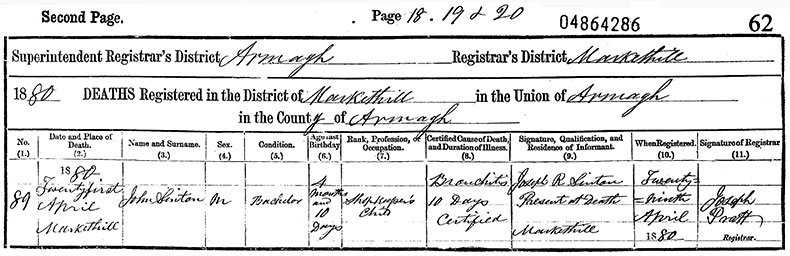 Second Page.
Page 18. 19 & 20
04864286
62
Superintendent Registrar's District Armagh Registrar's District Markethill
1880 DEATHS Registered in the District of Markethill in the Union of Armagh
in the County of Armagh
No. (1.)
Date and Place of Death. (2.)
Name and Surname. (3.)
Sex. (4.)
Condition. (5.)
Age last Birthday (6.)
Rank, Profession, or Occupation. (7.)
Certified Cause of Death, and Duration of Illness. (8.)
Signature, Qualification, and Residence of Informant. (9.)
When Registered. (10.)
Signature of Registrar (11.)
89
1880
Twenty first
April
Markethill
John Sinton
M
Bachelor
4
Months
and
10
Days
Shopkeeper's
Child
Bronchitis
10 Days
Certified
Joseph R. Sinton
Present at Death
Markethill
Twenty
=ninth
April
1880
Joseph
Pratt
Registrar.